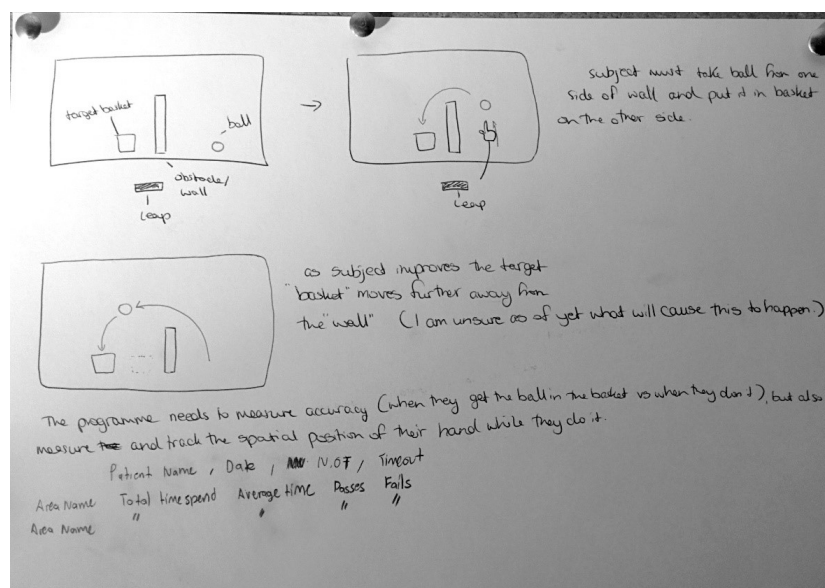 target basket
ball
obstacle/
wall
Leap
Leap
subject must take ball from one
side of wall and put it in basket
on the other side.
as subject improves the target
"basket" moves further away from
the "wall" (I am unsure as of yet what will cause this to happen.)
The programme needs to measure accuracy (when they get the ball in the basket vs when they don't), but also
measure and track the spatial position of their hand while they do it.
Patient Name, Date, N.OF, Timeout
Area Name Total time spend Average time Passes Fails
Area Name " " " "